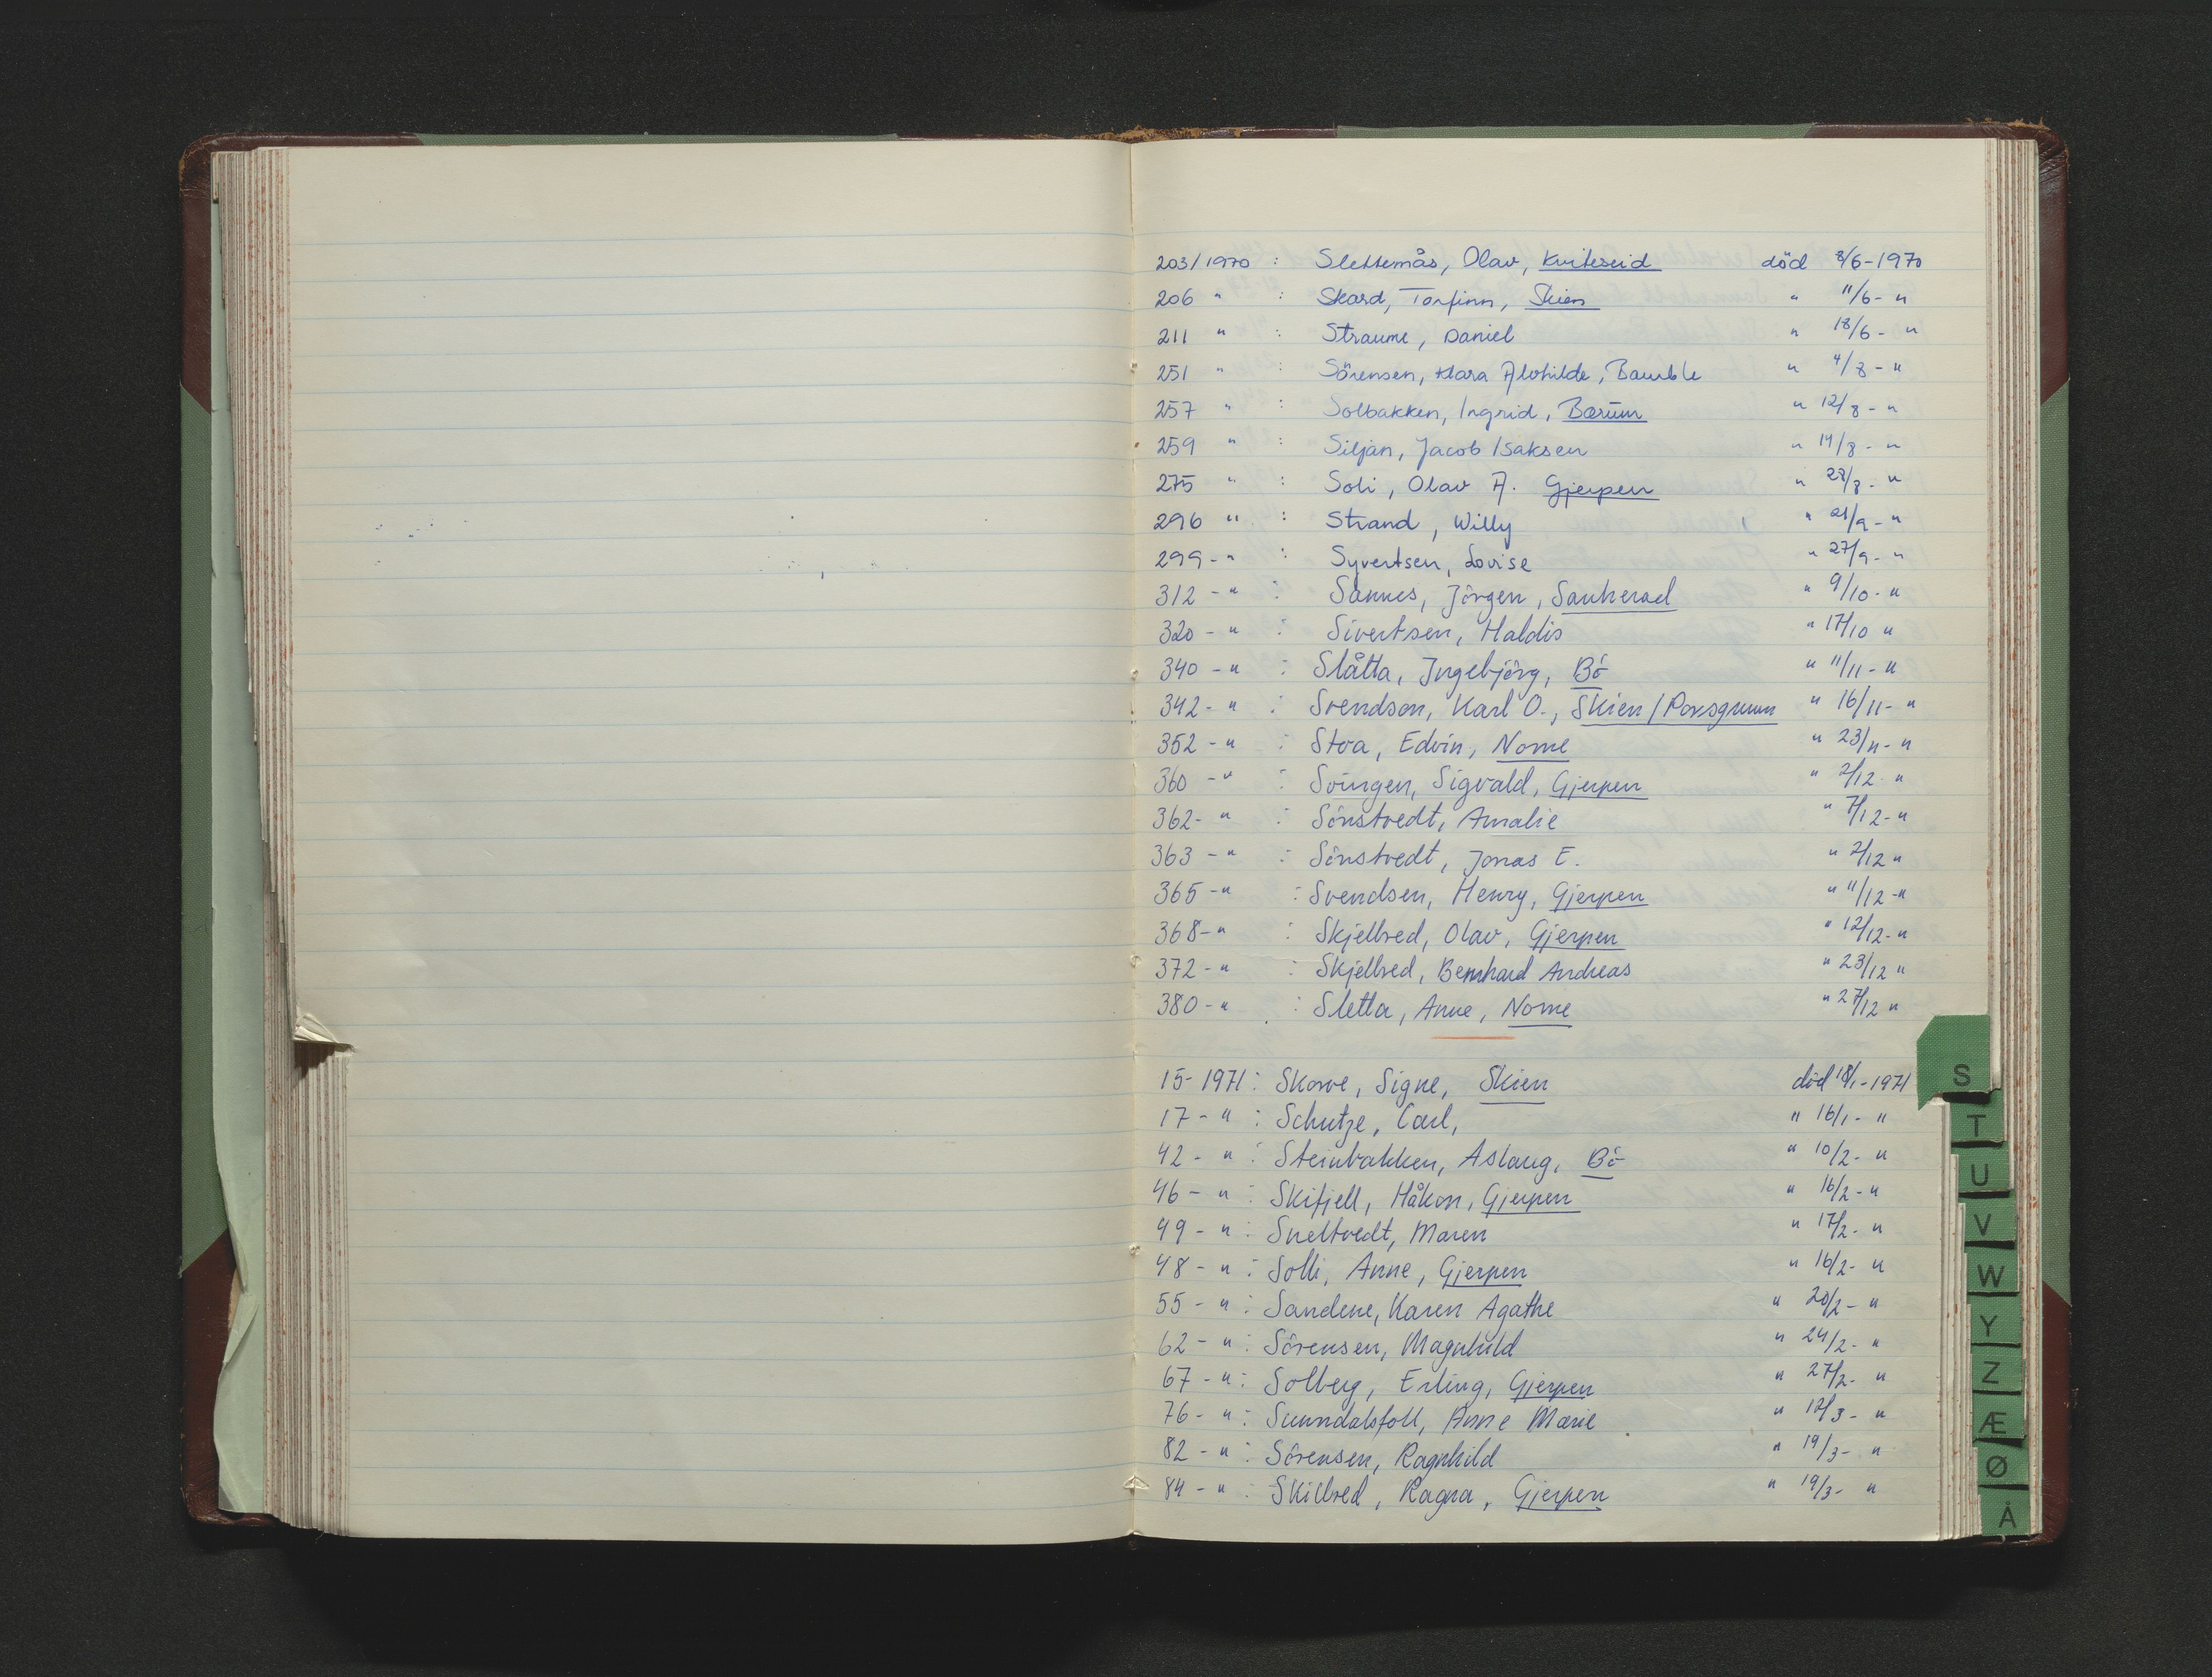 203/1970 : Slettemås, Olav, Kviteseid död 8/6-1970
206 " : Skard, Torfinn, Skien " 11/6- "
211 " : Straume, Daniel " 18/6- "
251 " : Sörensen, Klara Alvhilde, Bamble " 4/8 - "
257 " : Solbakken, Ingrid, Bærum " 12/8 - "
259 " : Siljan, Jacob Isaksen " 14/8 - "
275 " : Soli, Olav A. Gjerpen " 28/8 - "
296 " : Strand, Willy " 21/9 - "
299 - " : Syvertsen, Lovise " 27/9 - "
312 - " : Sannes, Jörgen, Sauherad " 9/10 - "
320 - " : Sivertsen, Haldis " 17/10 "
340 - " : Slåtta, Ingebjörg, Bö " 11/11 - "
342 - " : Svendsen, Karl O., Skien/Porsgrunn " 16/11 - "
352 - " : Stoa, Edvin, Nome " 23/11 - "
360 - " : Svingen, Sigvald, Gjerpen " 2/12 - "
362 - " : Sönstvedt, Amalie " 7/12 - "
363 - " : Sönstvedt, Jonas E. " 2/12 "
365 - " : Svendsen, Henry, Gjerpen " 11/12 - "
368 - " : Skjelbred, Olav, Gjerpen " 12/12 - "
372 - " : Skjelbred, Bernhard Andreas " 23/12 "
380 - " : Sletta, Anne, Nome " 27/12 "
15-1971 : Skorve, Signe, Skien död 18/1-1971
17 - " : Schutze, Carl, " 16/1 - "
42 - " : Steinbakken, Aslaug, Bö " 10/2 - "
46 - " : Skifjell, Håkon, Gjerpen " 16/2 - "
49 - " : Sneltvedt, Maren " 17/2 - "
48 - " : Solli, Anne, Gjerpen " 16/2 - "
55 - " : Sandene, Karen Agathe " 20/2 - "
62 - " : Sörensen, Magnhild " 24/2 - "
67 - " : Solberg, Erling, Gjerpen " 27/2 - "
76 - " : Sunndalsfoll, Anne Marie " 12/3 - "
82 - " : Sörensen, Ragnhild " 19/3 - "
84 - " : Skilbred, Ragna, Gjerpen " 19/3 - "
S
T
U
V
W
Y
Z
Æ
Ø
Å